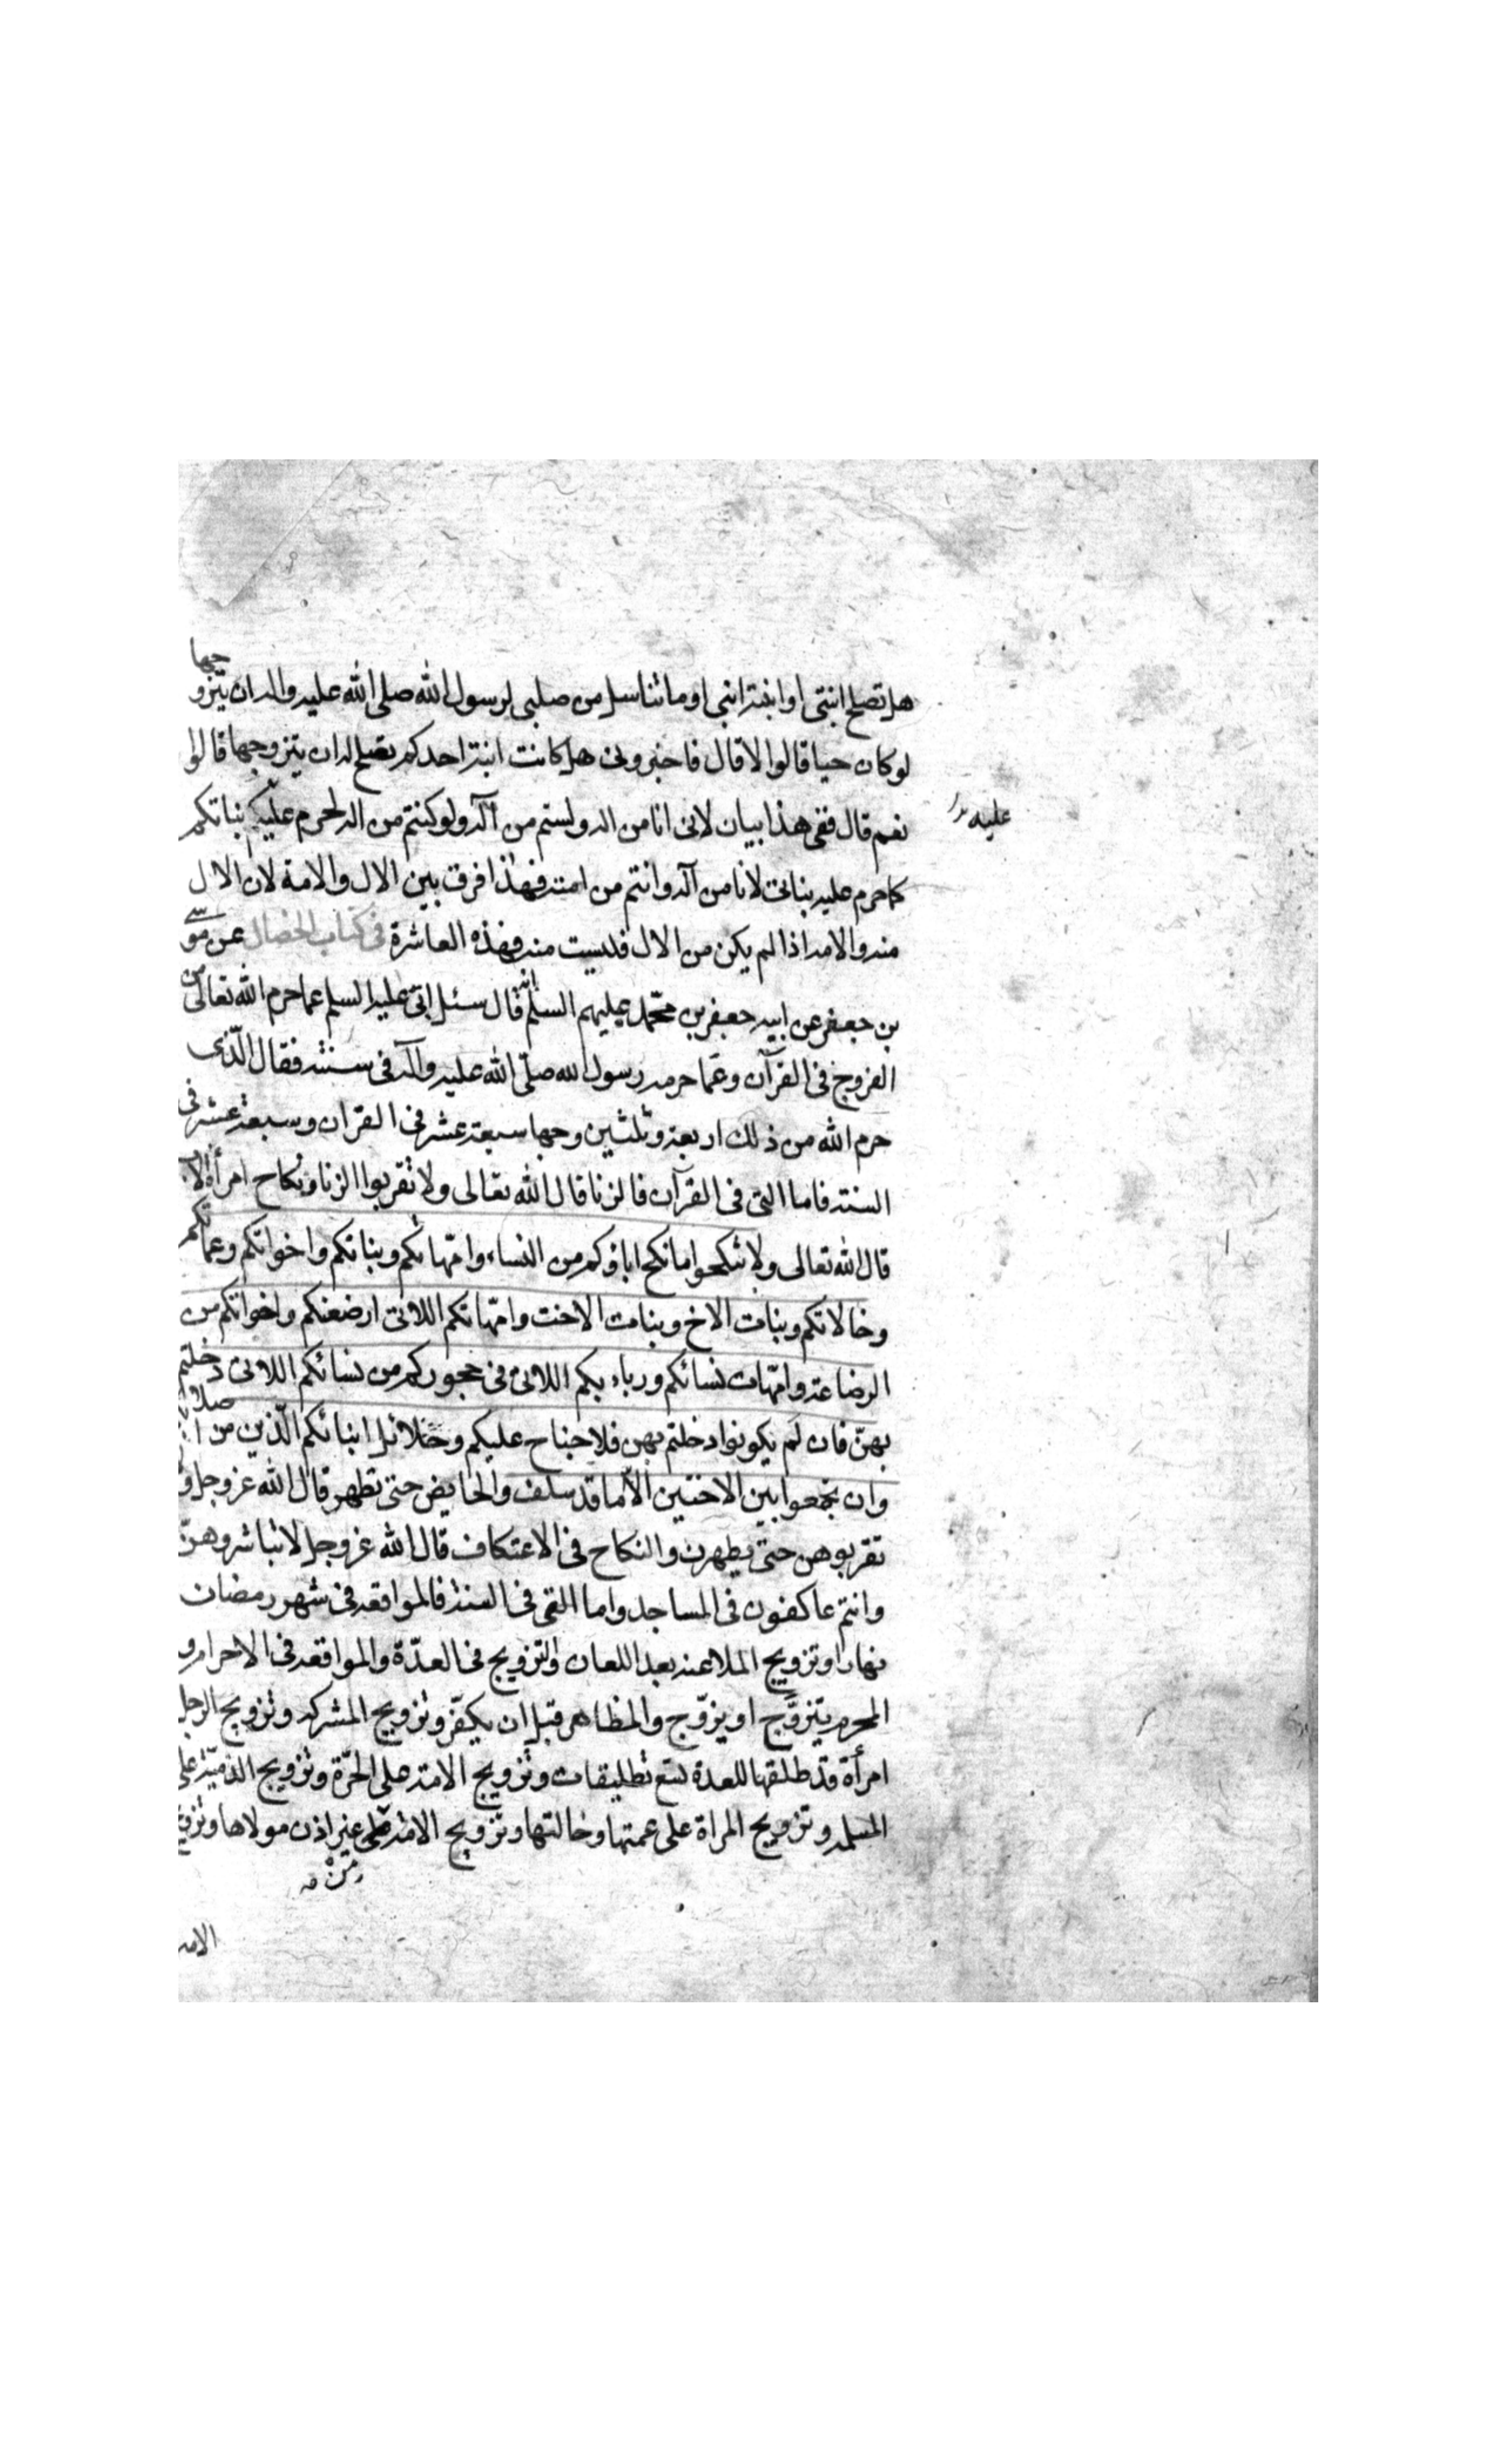 هل تصلح ابنتى او ابنة ابنى او ما تناسل من صلبى لرسول الله صلى الله عليه واله ان يتزوجها
لو كان حيا قالوا لا قال فاخبرونى هل كانت ابنة احدكم تصلح له ان يتزوجها قالوا
نعم قال ففى هذا بيان لانى انا من اله ولستم من آله ولو كنتم من اله لحرم عليه بناتكم
عليه
كما حرم عليه بناتى لانا من آله وانتم من امته فهذا فرق بين الال والامة لان الال
منه والامة اذا لم يكن من الال فليست منه فهذه العاشرة فى كتاب الخصال عن موسى
بن جعفر عن ابيه جعفر بن محمّد عليهم السلم انه قال سئل ابى عليه السلم عما حرم الله تعالى من
الفروج فى القرآن وعمّا حرمه رسول الله صلّى الله عليه وآله فى سنته فقال الّذى
حرم الله من ذلك اربعة وثلثين وجها سبعة عشر فى القران وسبعة عشر فى
السنة فاما التى فى القرآن فالزنا قال الله تعالى ولا تقربوا الزنا ونكاح امرأة الاب
قال الله تعالى ولا تنكحوا ما نكح اباؤكم من النساء وامّهاتكم وبناتكم واخواتكم وعماتكم
وخالاتكم وبنات الاخ وبنات الاخت وامّهاتكم اللاتى ارضعنكم واخواتكم من
الرضاعة وامّهات نسائكم وربائبكم اللاتى فى حجوركم من نسائكم اللاتى دخلتم
بهنّ فان لم يكونوا دخلتم بهن فلا جناح عليكم وحلائل ابنائكم الّذين من اصلابكم
وان تجمعوا بين الاختين الّا ما قد سلف والحايض حتى تطهر قال الله عز وجل و
تقربوهن حتى يطهرن والنكاح فى الاعتكاف قال الله عز وجل لا تباشروهنّ
وانتم عاكفون فى المساجد واما التى فى السنة فالمواقعة فى شهر رمضان
نهارا وتزويج الملاعنة بعد اللعان والتزويج فى العدّة والمواقعة فى الاحرام و
المحرم يتزوّج او يزوّج والمظاهر قبل ان يكفّر وتزويج المشركة وتزويج الرجل
امرأة قد طلقها للعدة تسع تطليقات وتزويج الامة على الحرّة وتزويج الذميّة على
المسلمة وتزويج المراة على عمتها وخالتها وتزويج الامة على غير اذن مولاها وتزويج
من
الامة